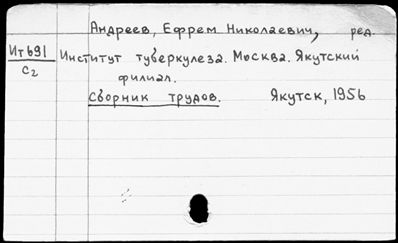 Андреев, Ефрем Николаевич, ред.
ИтЬ91 Институт туберкулеза. Москва. Якутский
С2 филиал.
Сборник трудов. Якутск, 1956